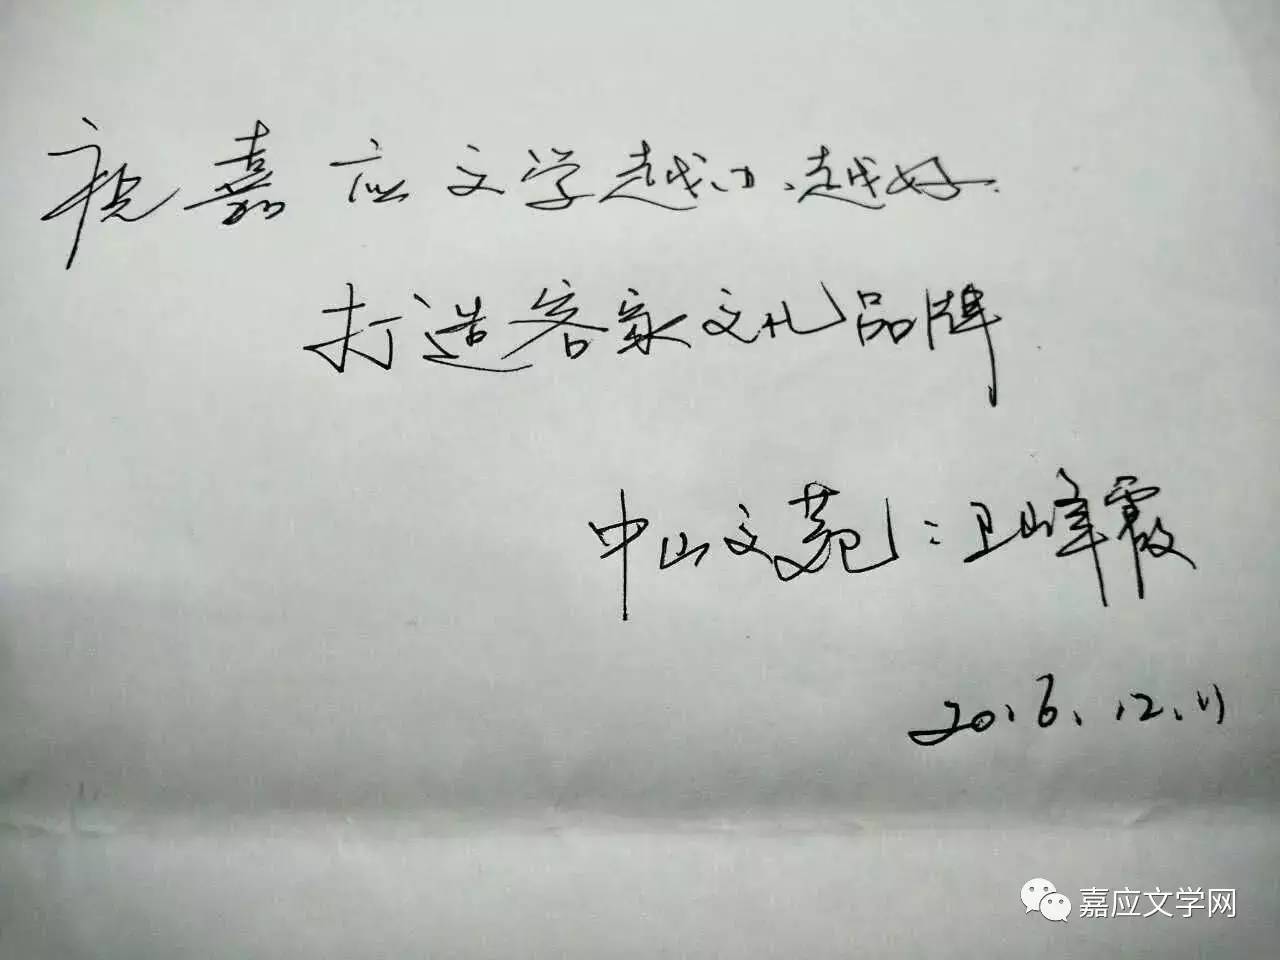 祝嘉应文学越办越好
打造客家文化品牌
中山文苑：卫峰霞
2016.12.11
嘉应文学网